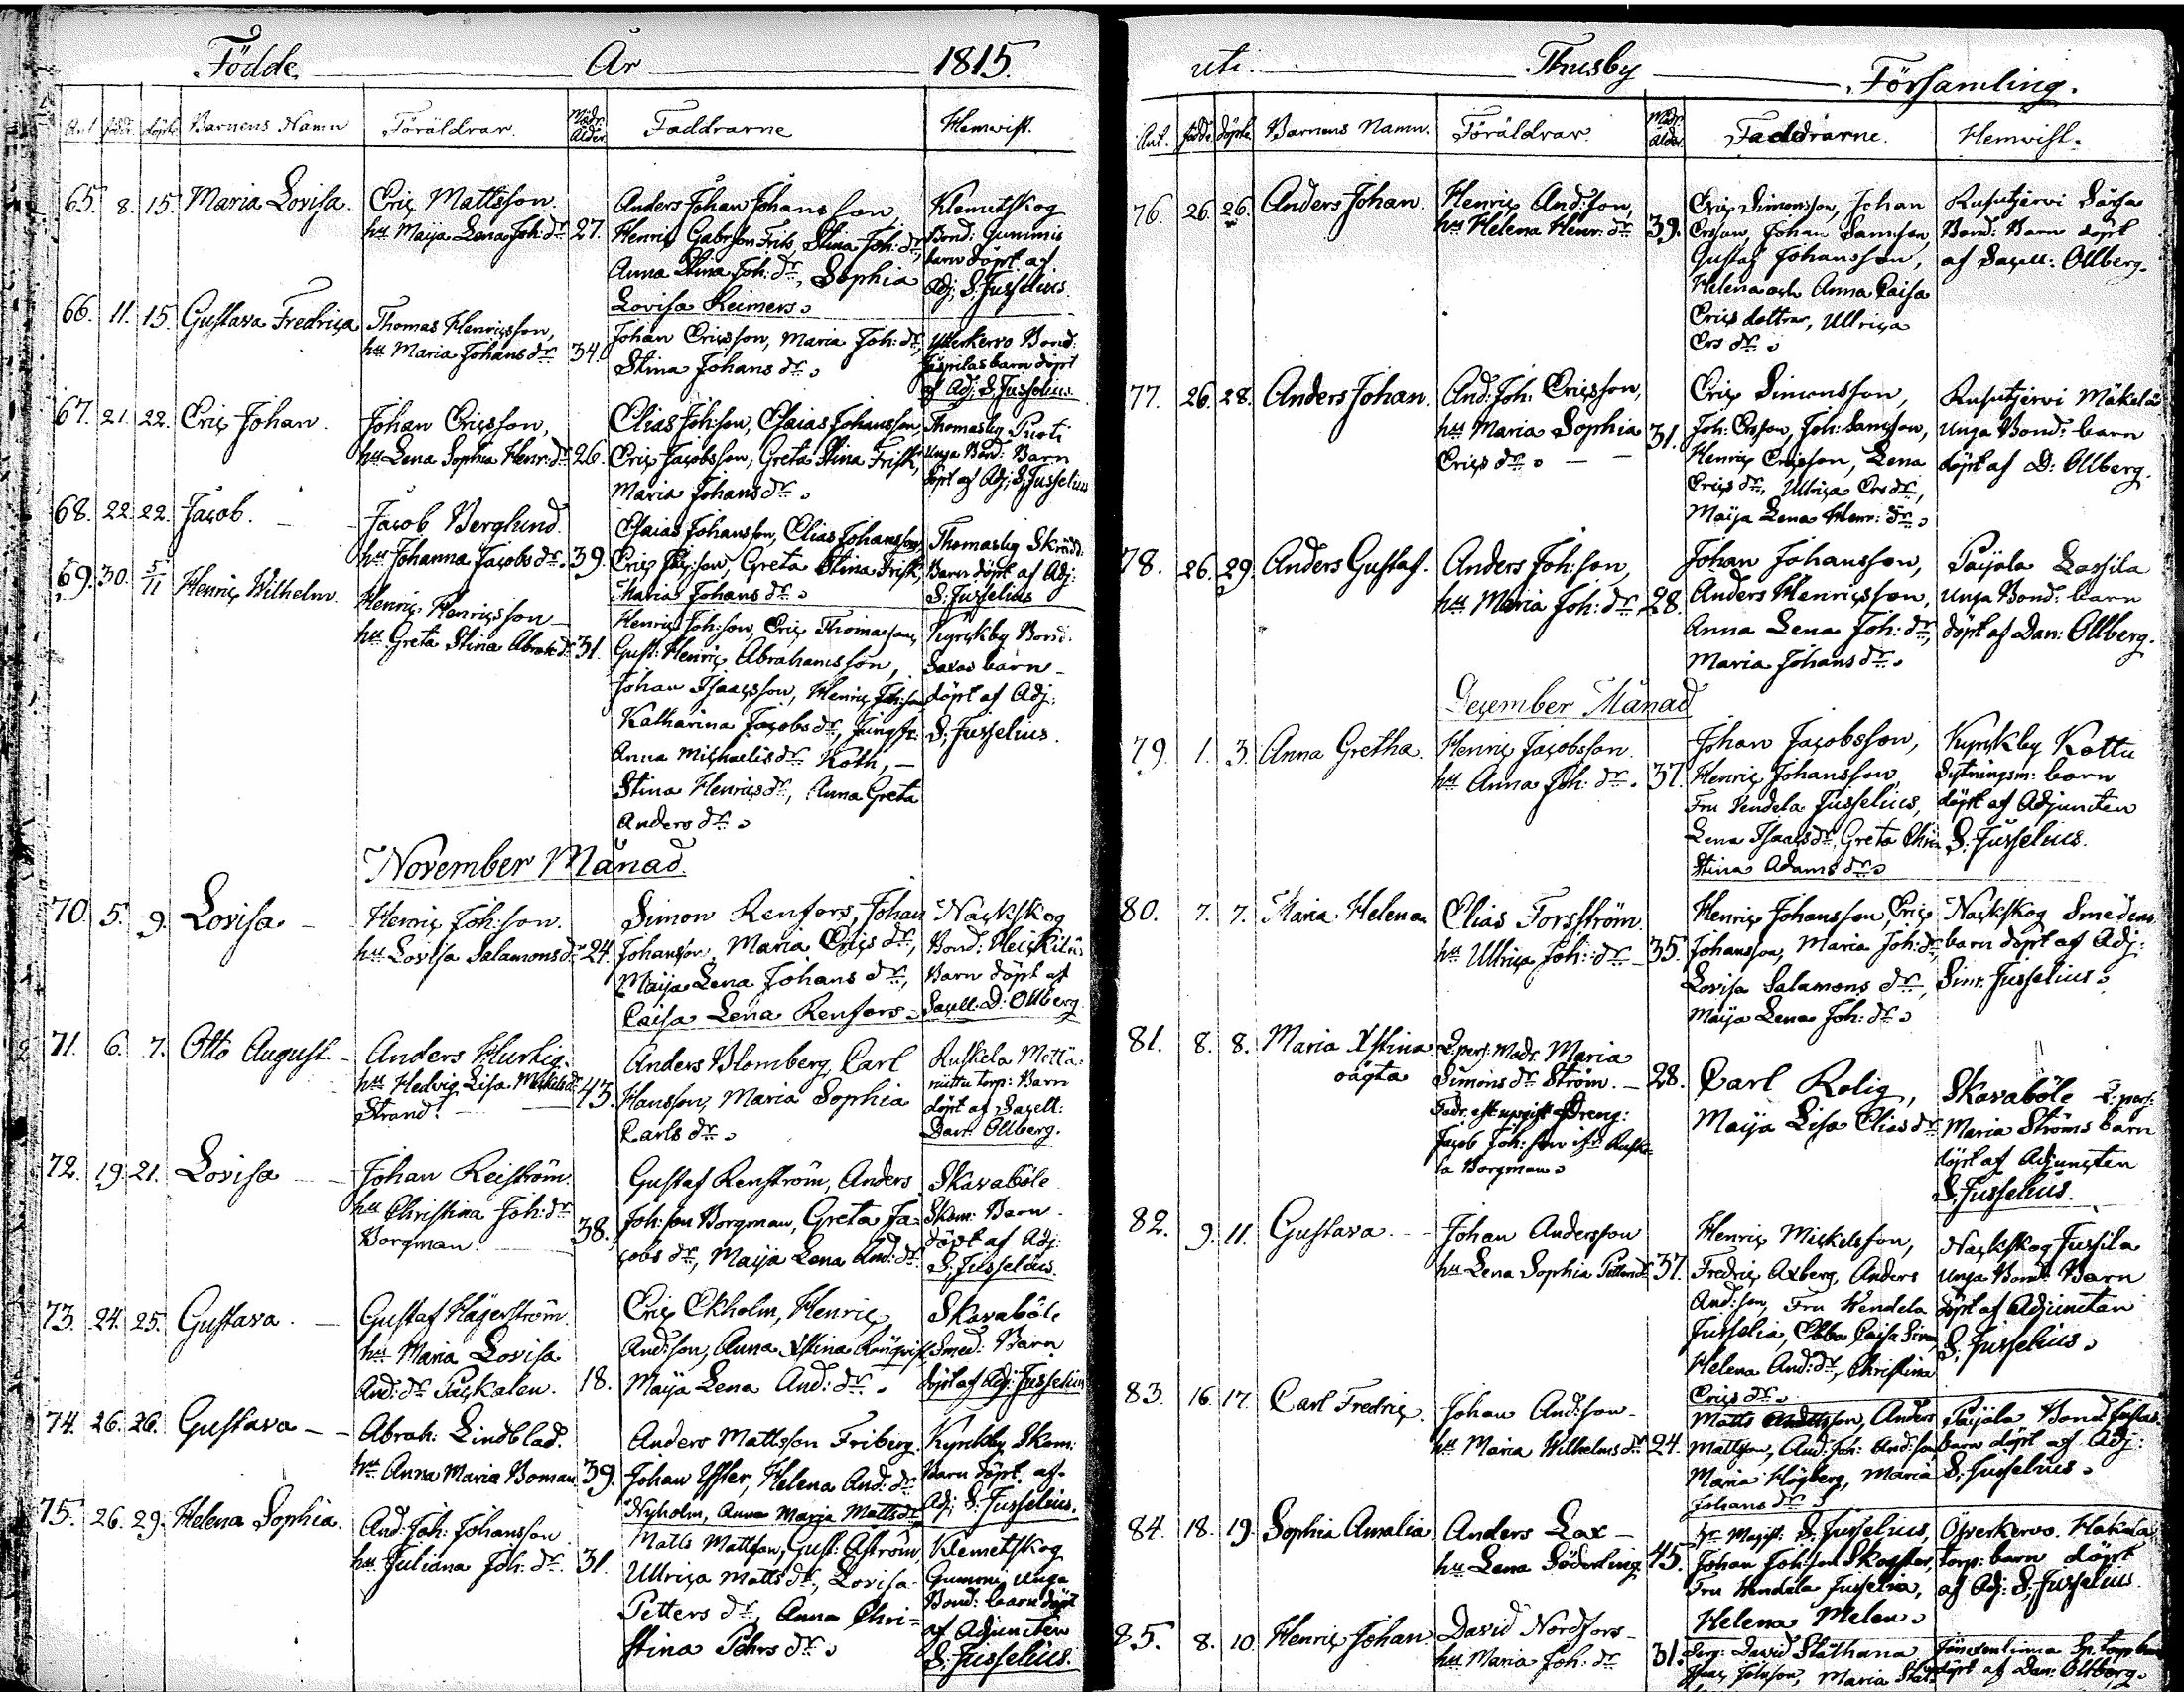 Födde År 1815.
Ant. född. döpte Barnens Namn Föräldrar. Modr. ålder Faddrarne Hemvist.
65. 8. 15. Maria Lovisa.
Eric Mattsson.
hu Maija Lena Joh: dr 27.
Anders Johan Johansson,
Henric Gabr:son Friis, Stina Joh: dr,
Anna Stina Joh: dr, Sophia
Lovisa Reimers.
Klemetskog
Bond: Gummis
barn döpt af
Adj: S: Jusselius.
66. 11. 15. Gustava Fredrica
Thomas Henricsson,
hu Maria Johans dr 34.
Johan Ericsson, Maria Joh: dr,
Stina Johans dr.
Ytterkervo Bond:
barn döpt
af Adj: S: Jusselius.
67. 21. 22. Eric Johan.
Johan Ericsson,
hu Lena Sophia Henr: dr 26.
Elias Joh:son, Esaias Johansson,
Eric Jacobsson, Greta Stina Frisk,
Maria Johans dr.
Thomasby Puoti
Unga Bond: Barn
döpt af Adj: S: Jusselius
68. 22. 22. Jacob.
Jacob Berglund.
hu Johanna Jacobs dr. 39.
Esaias Johansson, Elias Johansson,
Eric Jac:son, Greta Stina Frisk,
Maria Johans dr.
Thomasby Skrädd:
Barn döpt af Adj:
S: Jusselius
69. 30. 5/11 Henric Wilhelm.
Henric Henricsson
hu Greta Stina Abrah: dr 31.
Henric Joh:son, Eric Thomasson,
Gust: Henric Abrahamsson,
Johan Isaacsson, Henric Joh:son
Katharina Jacobs dr, Jungfr:
Anna Michaelis dr Roth,
Stina Henrics dr, Anna Greta
Anders dr.
Kyrckby Bond.
Saxas barn
döpt af Adj:
S: Jusselius.
November Månad.
70. 5. 9. Lovisa
Henric Joh:son.
hu Lovisa Salamons dr 24.
Simon Renfors, Johan
Johansson, Maria Erics dr,
Maija Lena Johans dr,
Caisa Lena Renfors.
Nackskog
Bond: Heickilä
Barn döpt af
Sacell: D: Ollberg.
71. 6. 7. Otto August.
Anders Hurtig.
hu Hedvig Lisa Mickels dr 43.
Strand.
Anders Blomberg, Carl
Hansson, Maria Sophia
Carls dr.
Ruskela Mettä-
niittu torp: Barn
döpt af Sacell:
Dan: Ollberg.
72. 19. 21. Lovisa
Johan Reiström.
hu Christina Joh: dr
Borgman. 38.
Gustaf Renström, Anders
Joh:son Borgman, Greta Ja-
cobs dr, Maija Lena And: dr.
Skavaböle
Skom: Barn
döpt af Adj:
S: Jusselius.
73. 24. 25. Gustava.
Gustaf Hägerström
hu Maria Lovisa
And: dr Packalen. 18.
Eric Ekholm, Henric
And:son, Anna Xstina Rönqvist,
Maija Lena And: dr.
Skavaböle
Smed: Barn
döpt af Adj: Jusselius
74. 26. 26. Gustava
Abrah: Lindblad.
hu Anna Maria Boman 39.
Anders Mattsson Friberg.
Johan Yster, Helena And: dr
Nyholm, Anna Maria Matts dr
Kyrckby Skom:
Barn döpt af
Adj: S: Jusselius.
75. 26. 29. Helena Sophia.
And: Joh: Johansson
hu Juliana Joh: dr 31.
Matts Mattson, Gust: Åström,
Ullrica Matts dr, Lovisa
Petters dr, Anna Chri-
stina Pehrs dr.
Klemetskog
Gummi Unga
Bond: barn döpt
af Adjuncten
S: Jusselius.
uti Thusby Församling.
Ant. födde döpte Barnens Namn. Föräldrar. Modr. ålder Faddrarne. Hemvist.
76. 26. 26. Anders Johan.
Henric And:son,
hu Helena Henr: dr 39.
Eric Simonsson, Johan
Ersson, Johan Samson,
Gustaf Johansson,
Helena och Anna Caisa
Erics dottrar, Ullrica
Ers dr.
Rusutjervi
Bond: Barn döpt
af Sacell: Ollberg.
77. 26. 28. Anders Johan.
And: Joh: Ericsson,
hu Maria Sophia 31.
Erics dr.
Eric Simonsson,
Joh: Ersson, Joh: Samsson,
Henric Ericsson, Lena
Erics dr, Ullrica Ers dr,
Maija Lena Henr: dr.
Rusutjervi Mäkelä
Unga Bond: barn
döpt af D: Ollberg.
78. 26. 29. Anders Gustaf.
Anders Joh:son,
hu Maria Joh: dr 28.
Johan Johansson,
Anders Henricsson,
Anna Lena Joh: dr,
Maria Johans dr.
Paijala Lassila
Unga Bond: barn
döpt af Dan: Ollberg.
December Månad
79. 1. 3. Anna Gretha.
Henric Jacobsson.
hu Anna Joh: dr. 37.
Johan Jacobsson,
Henric Johansson,
Fru Vendela Jusselius,
Lena Isaacs dr, Greta Chri-
stina Adams dr.
Kyrckby Kottu
Sytningsm: barn
döpt af Adjuncten
S: Jusselius.
80. 7. 7. Maria Helena
Elias Forsström.
hu Ullrica Joh: dr 35.
Henric Johansson, Eric
Johansson, Maria Joh: dr,
Lovisa Salamons dr,
Maija Lena Joh: dr.
Nackskog Smedens
barn döpt af Adj:
Sim: Jusselius.
81. 8. 8. Maria Xstina
oägta
Q:pers: Modr. Maria
Simons dr Ström. 28.
Fadr. eft. upgift Dreng:
Jacob Joh:son ifr Ruske-
la Borgman.
Carl Rolig,
Maija Lisa Elias dr
Skavaböle Q:pers:
Maria Ströms barn
döpt af Adjuncten
S: Jusselius.
82. 9. 11. Gustava.
Johan Andersson
hu Lena Sophia Petters dr 37.
Henric Mickelsson,
Fredric Axberg, Anders
And:son, Fru Wendela
Jusselia, Ebba Caisa Siren,
Helena And: dr, Christina
Erics dr.
Nackskog Jussila
Unga Bond: Barn
döpt af Adjunctan
S: Jusselius.
83. 16. 17. Carl Fredric.
Johan And:son
hu Maria Wilhelms dr 24.
Matts Mattsson, Anders
Mattsson, And: Joh: And:son,
Maria Högberg, Maria
Johans dr.
Paijala Bond:
barn döpt af Adj:
S: Jusselius.
84. 18. 19. Sophia Amalia.
Anders Lax
hu Lena Söderling 45.
hr Magist: S: Jusselius,
Johan Joh:son Skogster,
Fru Vendela Jusselia,
Helena Melen.
Ofverkervo. Hakala
torp: barn döpt
af Adj: S: Jusselius.
85. 8. 10. Henric Johan.
David Nordfors
hu Maria Joh: dr 31.
Serg: David Ståthana
Isaac Johnson, Maria
döpt af Dan: Ollberg.